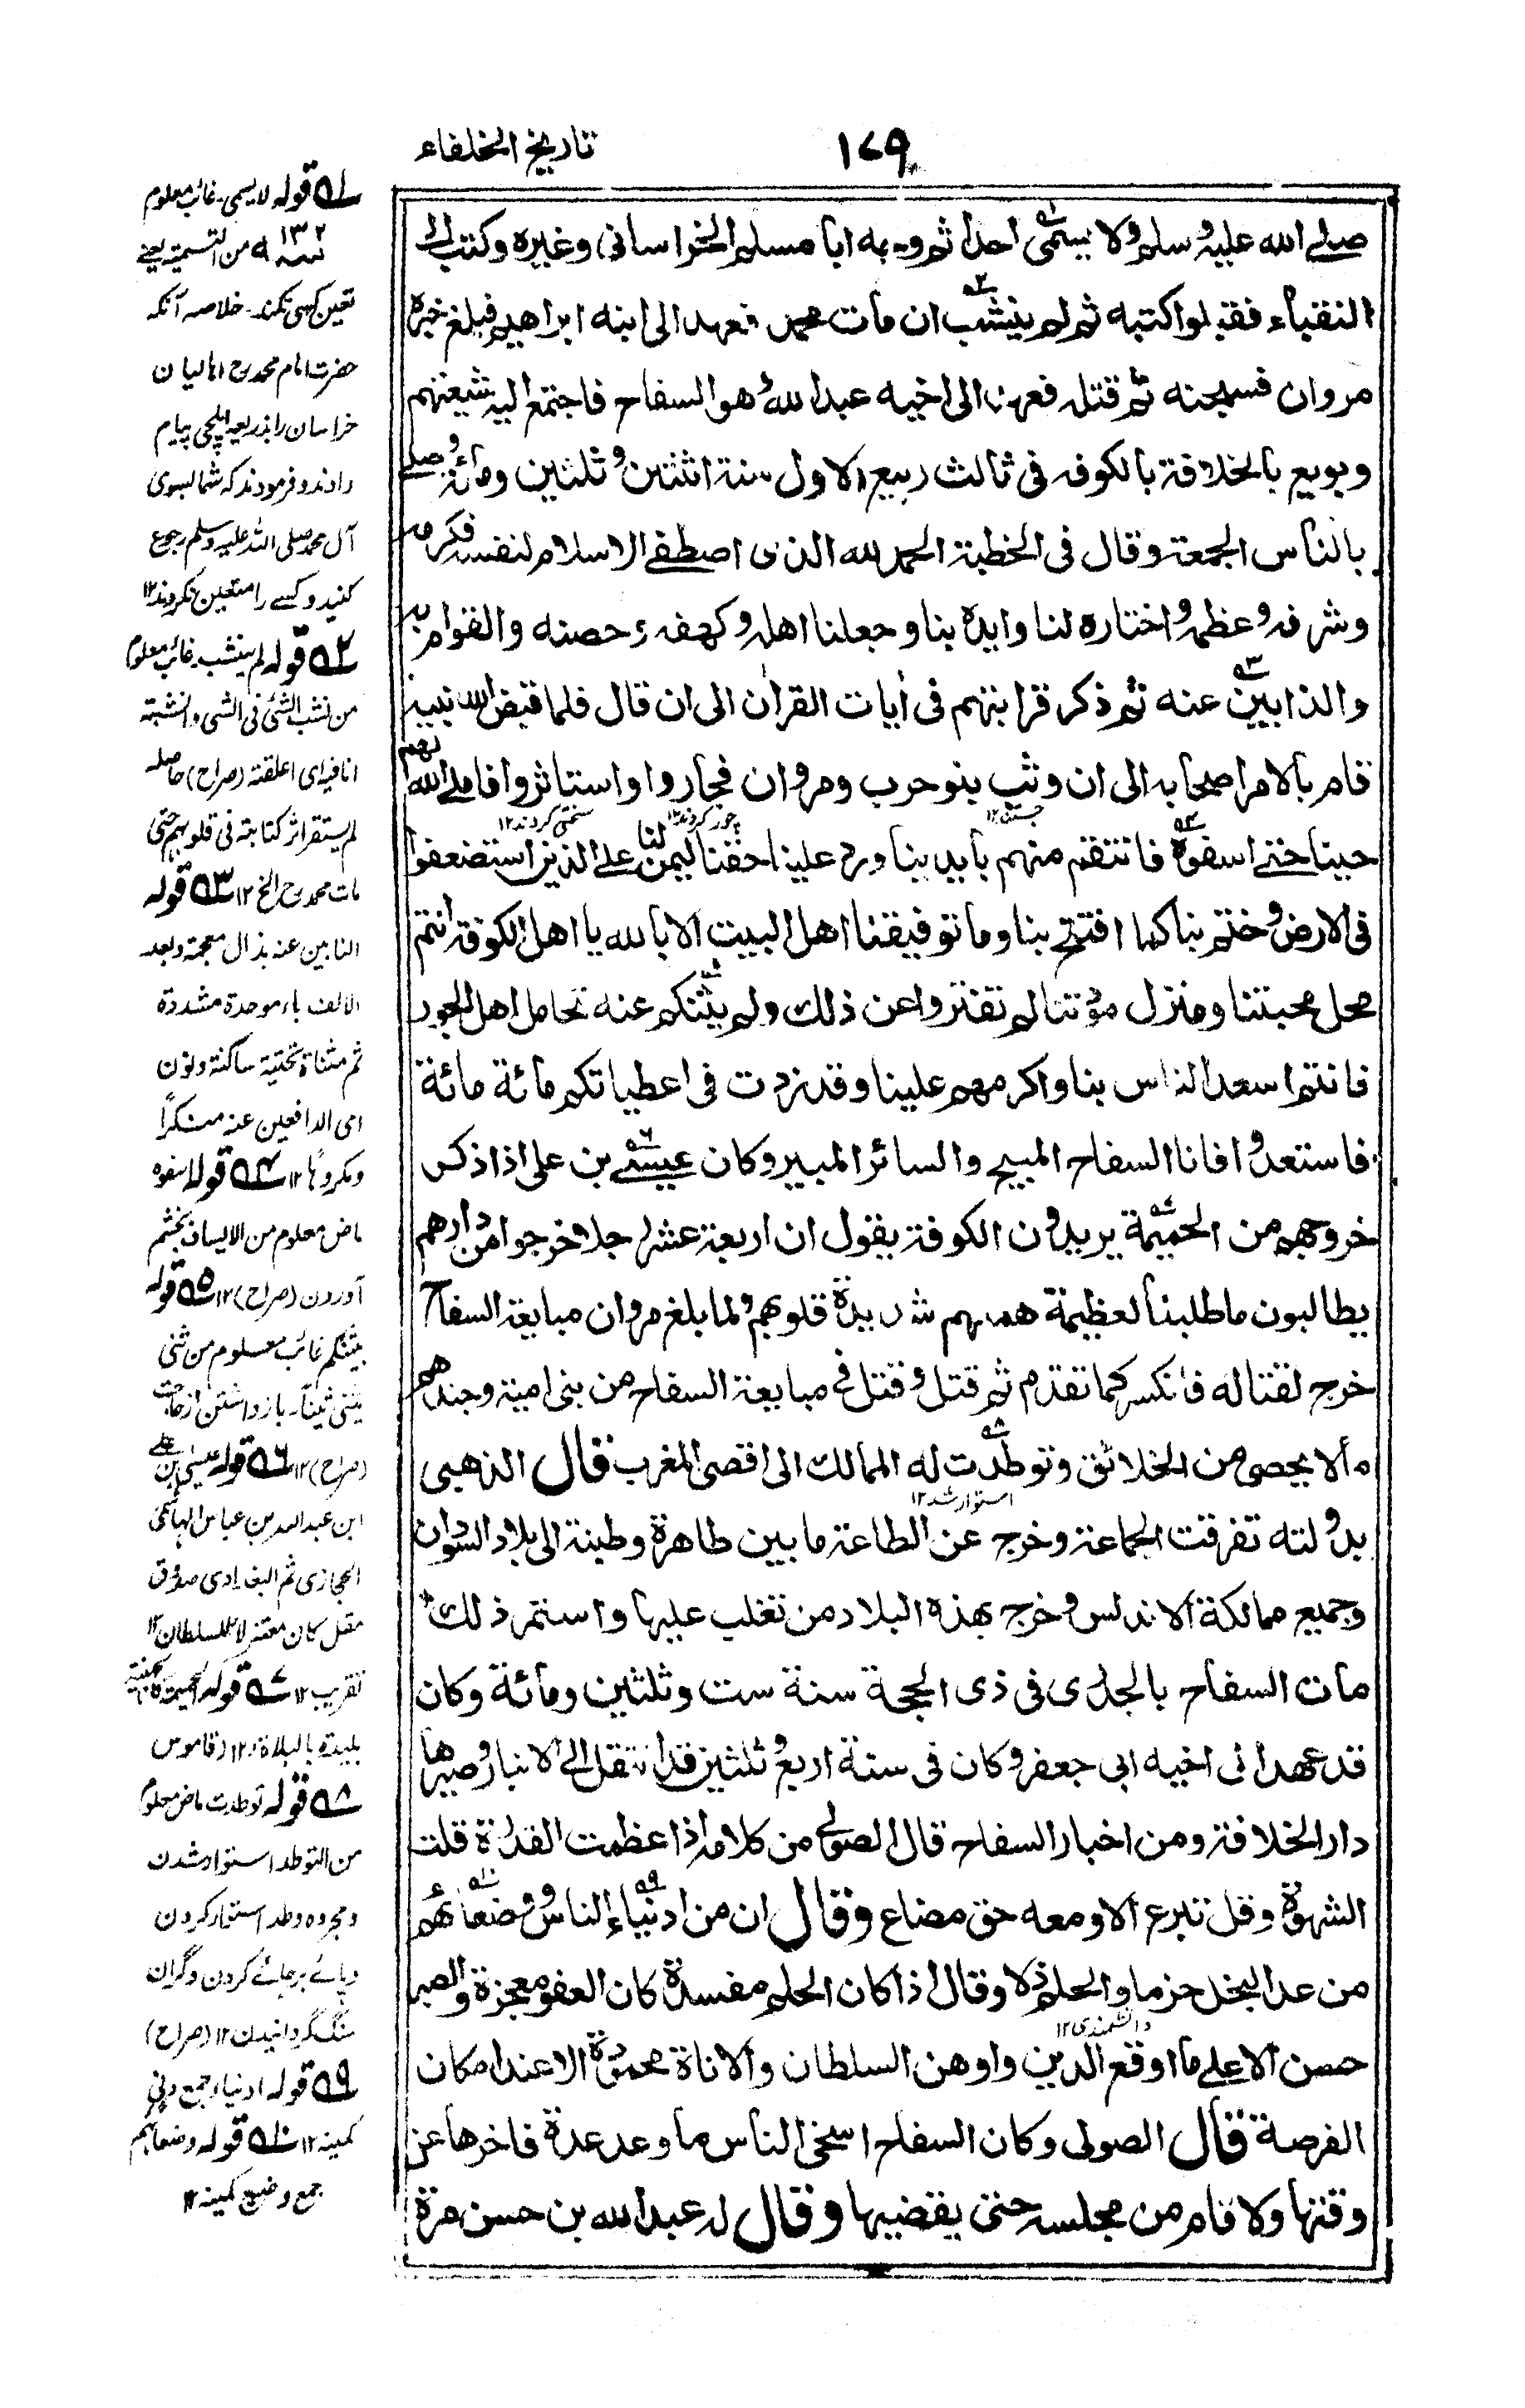 ١٧٩
تاريخ الخلفاء
صلے الله عليه وسلم ولا يسمى احدا ثم وجه ابا مسلم الخراسانى وغيره وكتب الى
النقباء فقبلوا كتبه ثم لم ينشب ان مات محمد فعهد الى ابنه ابراهيم فبلغ خبره
مروان فسجنه ثم قتله فعهد الى اخيه عبد الله وهو السفاح فاجتمع اليه شيعتهم
وبويع بالخلافة بالكوفه فى ثالث ربيع الاول سنة اثنتين وثلثين ومائة وصلے
بالناس الجمعة وقال فى الخطبة الحمد لله الذى اصطفے الاسلام لنفسه فكرمه
وشرفه وعظمه واختاره لنا وايده بنا وجعلنا اهله وكهفه وحصنه والقوام به
والذابين عنه ثم ذكر قرابتهم فى أيات القران الى ان قال فلما قبض الله نبيه
قام بالامر اصحابه الى ان وثب بنو حرب ومروان فجاروا واستاثروا فاملے الله لهم
حينا حتے اسفوه فانتقم منهم بايدينا ورد علينا حقنا ليمن لنا علے الذين استضعفوا
جستن ١٢ جور كردند ١٢ سختى كردند ١٢
فى الارض وختم بنا كما افتتح بنا وما توفيقنا اهل البيت الا بالله يا اهل الكوفة انتم
محل محبتنا ومنزل مودتنا لم تفتروا عن ذلك ولم يثنكم عنه تحامل اهل الجور
فانتم اسعد الناس بنا واكرمهم علينا وقد زدت فى اعطياتكم مائة مائة
فاستعدوا فانا السفاح المبيح والسائر المبير وكان عيسے بن على اذا ذكر
خروجهم من الحميمة يريدون الكوفة يقول ان اربعة عشر رجلا خرجوا من دارهم
يطالبون ما طلبنا لعظيمة هممهم شديدة قلوبهم ولما بلغ مروان مبايعة السفاح
خرج لقتاله فانكسر كما تقدم ثم قتل وقتل فى مبايعة السفاح من بنى امية وجندهم
ما لا يحصى من الخلائق وتوطدت له الممالك الى اقصى المغرب قال الذهبى
استوار شد ١٢
بدولته تفرقت الجماعة وخرج عن الطاعة ما بين طاهرة وطبنة الى بلاد السودان
وجميع مملكة الاندلس وخرج بهذه البلاد من تغلب عليها واستمر ذلك
مات السفاح بالجدرى فى ذى الحجة سنة ست وثلثين ومائة وكان
قد عهد الى اخيه ابى جعفر وكان فى سنة اربع وثلثين قد انتقل الى الانبار وصيرها
دار الخلافة ومن اخبار السفاح قال الصولے من كلامه اذا عظمت القدرة قلت
الشهوة وقل تبرع الا ومعه حق مضاع وقال ان من ادنياء الناس ووضعائهم
من عد البخل حزما والحلم ذلا وقال اذا كان الحلم مفسدة كان العفو معجزة والصبر
دانشمندى ١٢
حسن الا علے ما اوقع الدين واوهن السلطان والاناة محمودة الا عند امكان
الفرصة قال الصولى وكان السفاح اسخى الناس ما وعد عدة فاخرها عن
وقتها ولا قام من مجلسه حتى يقضيها وقال له عبد الله بن حسن مرة
١ه قوله لا يسمى غائب معلوم
سنه ١٣٢ من التسمية يعنے
تعين كسى نكند خلاصه آنكه
حضرت امام محمد رح اهاليان
خراسان را بذريعه ايلچى پيام
دادند وفرمودند كه شما بسوى
آل محمد صلى الله عليه وسلم رجوع
كنيد وكسے را متعين نكردند ١٢
٢ه قوله لم ينشب غائب معلوم
من نشب الشئ فى الشئ وانشبته
انا فيه اى اعلقته (صراح) حاصله
لم يستقر اثر كتابته فى قلوبهم حتى
مات محمد رح الخ ١٢ ٣ه قوله
الذابين عنه بذال معجمة وبعد
الالف باء موحدة مشددة
ثم مثناة تحتية ساكنة ونون
اى الدافعين عنه منكرًا
ومكروهًا ١٢ ٤ه قوله اسفوه
ماض معلوم من الايساف بخشم
آوردن (صراح) ١٢ ٥ه قوله
يثنكم غائب معلوم من ثنى
يثنى ثنيًا باز داشتن از حاجت
(صراح) ١٢ ٦ه قوله عيسى بن علے
ابن عبد الله بن عباس الهاشمى
الحجازى ثم البغدادى صدوق
مقل كان معتزلا للسلطان ١٢
تقريب ١٢ ٧ه قوله الحميمة كجهينة
بليدة بالبلقاء ١٢ قاموس
٨ه قوله توطدت ماض معلوم
من التوطد استوار شدن
ومجرده وطد استوار كردن
وپائے برجائے كردن وگران
سنگ گردانيدن ١٢ (صراح)
٩ه قوله ادنياء جمع دنى
كمينه ١٢ ١٠ه قوله وضعائهم
جمع وضيع كمينه ١٢